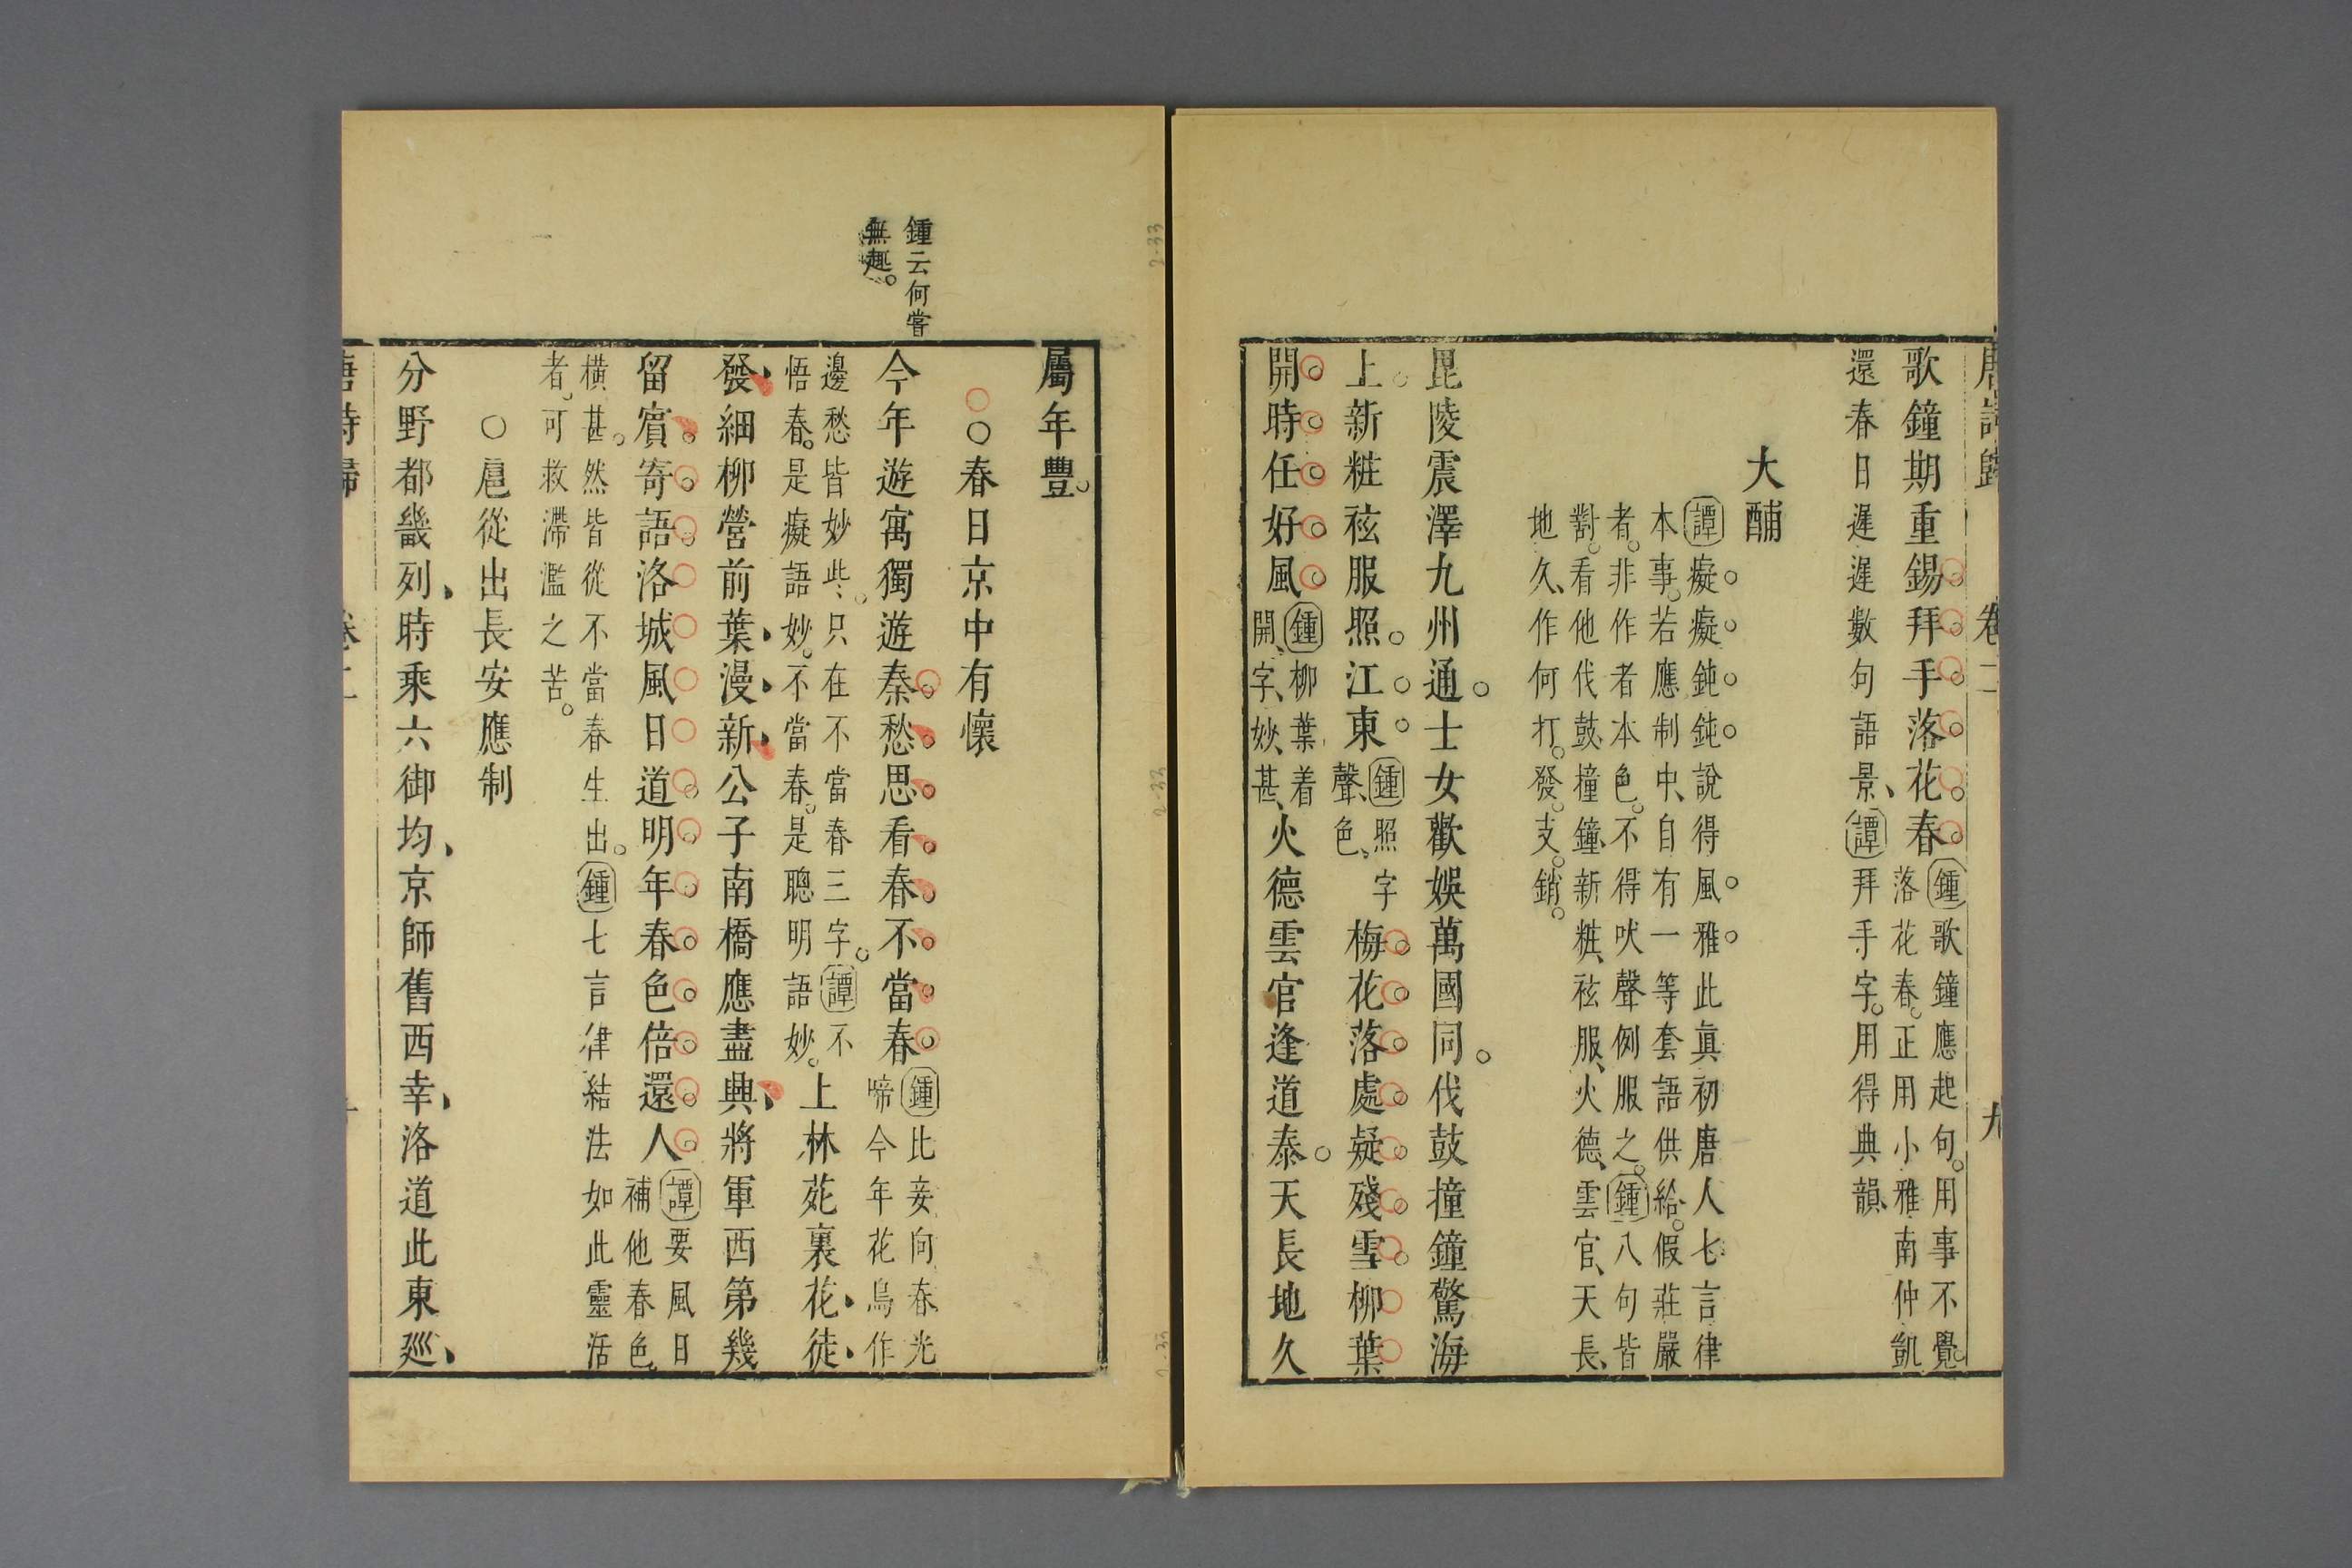 唐詩歸 卷二 九
歌鐘期重錫拜手落花春鍾歌鐘應起句用事不覺
落花春正用小雅南仲凱
還春日遲遲數句語景譚拜手字用得典韻
大酺
譚癡癡鈍鈍說得風雅此真初唐人七言律
本事若應制中自有一等套語供給假莊嚴
者非作者本色不得吠聲例服之鍾八句皆
對看他伐鼓撞鐘新粧袨服火德雲官天長
地久作何打發支銷
毘陵震澤九州通士女歡娛萬國同伐鼓撞鐘驚海
上新粧袨服照江東鍾照字聲色梅花落處疑殘雪柳葉
開時任好風鍾柳葉着開字妙甚火德雲官逢道泰天長地久
屬年豐
○○春日京中有懷
鍾云何嘗
無趣
今年遊寓獨遊秦愁思看春不當春鍾比妾向春光
啼今年花鳥作
邊愁皆妙此只在不當春三字譚不
悟春是癡語妙不當春是聰明語妙上林苑裏花徒
發細柳營前葉漫新公子南橋應盡興將軍西第幾
留賓寄語洛城風日道明年春色倍還人譚要風日
補他春色
橫甚然皆從不當春生出鍾七言律結法如此靈活
者可救滯濫之苦
○扈從出長安應制
分野都畿列時乘六御均京師舊西幸洛道此東巡